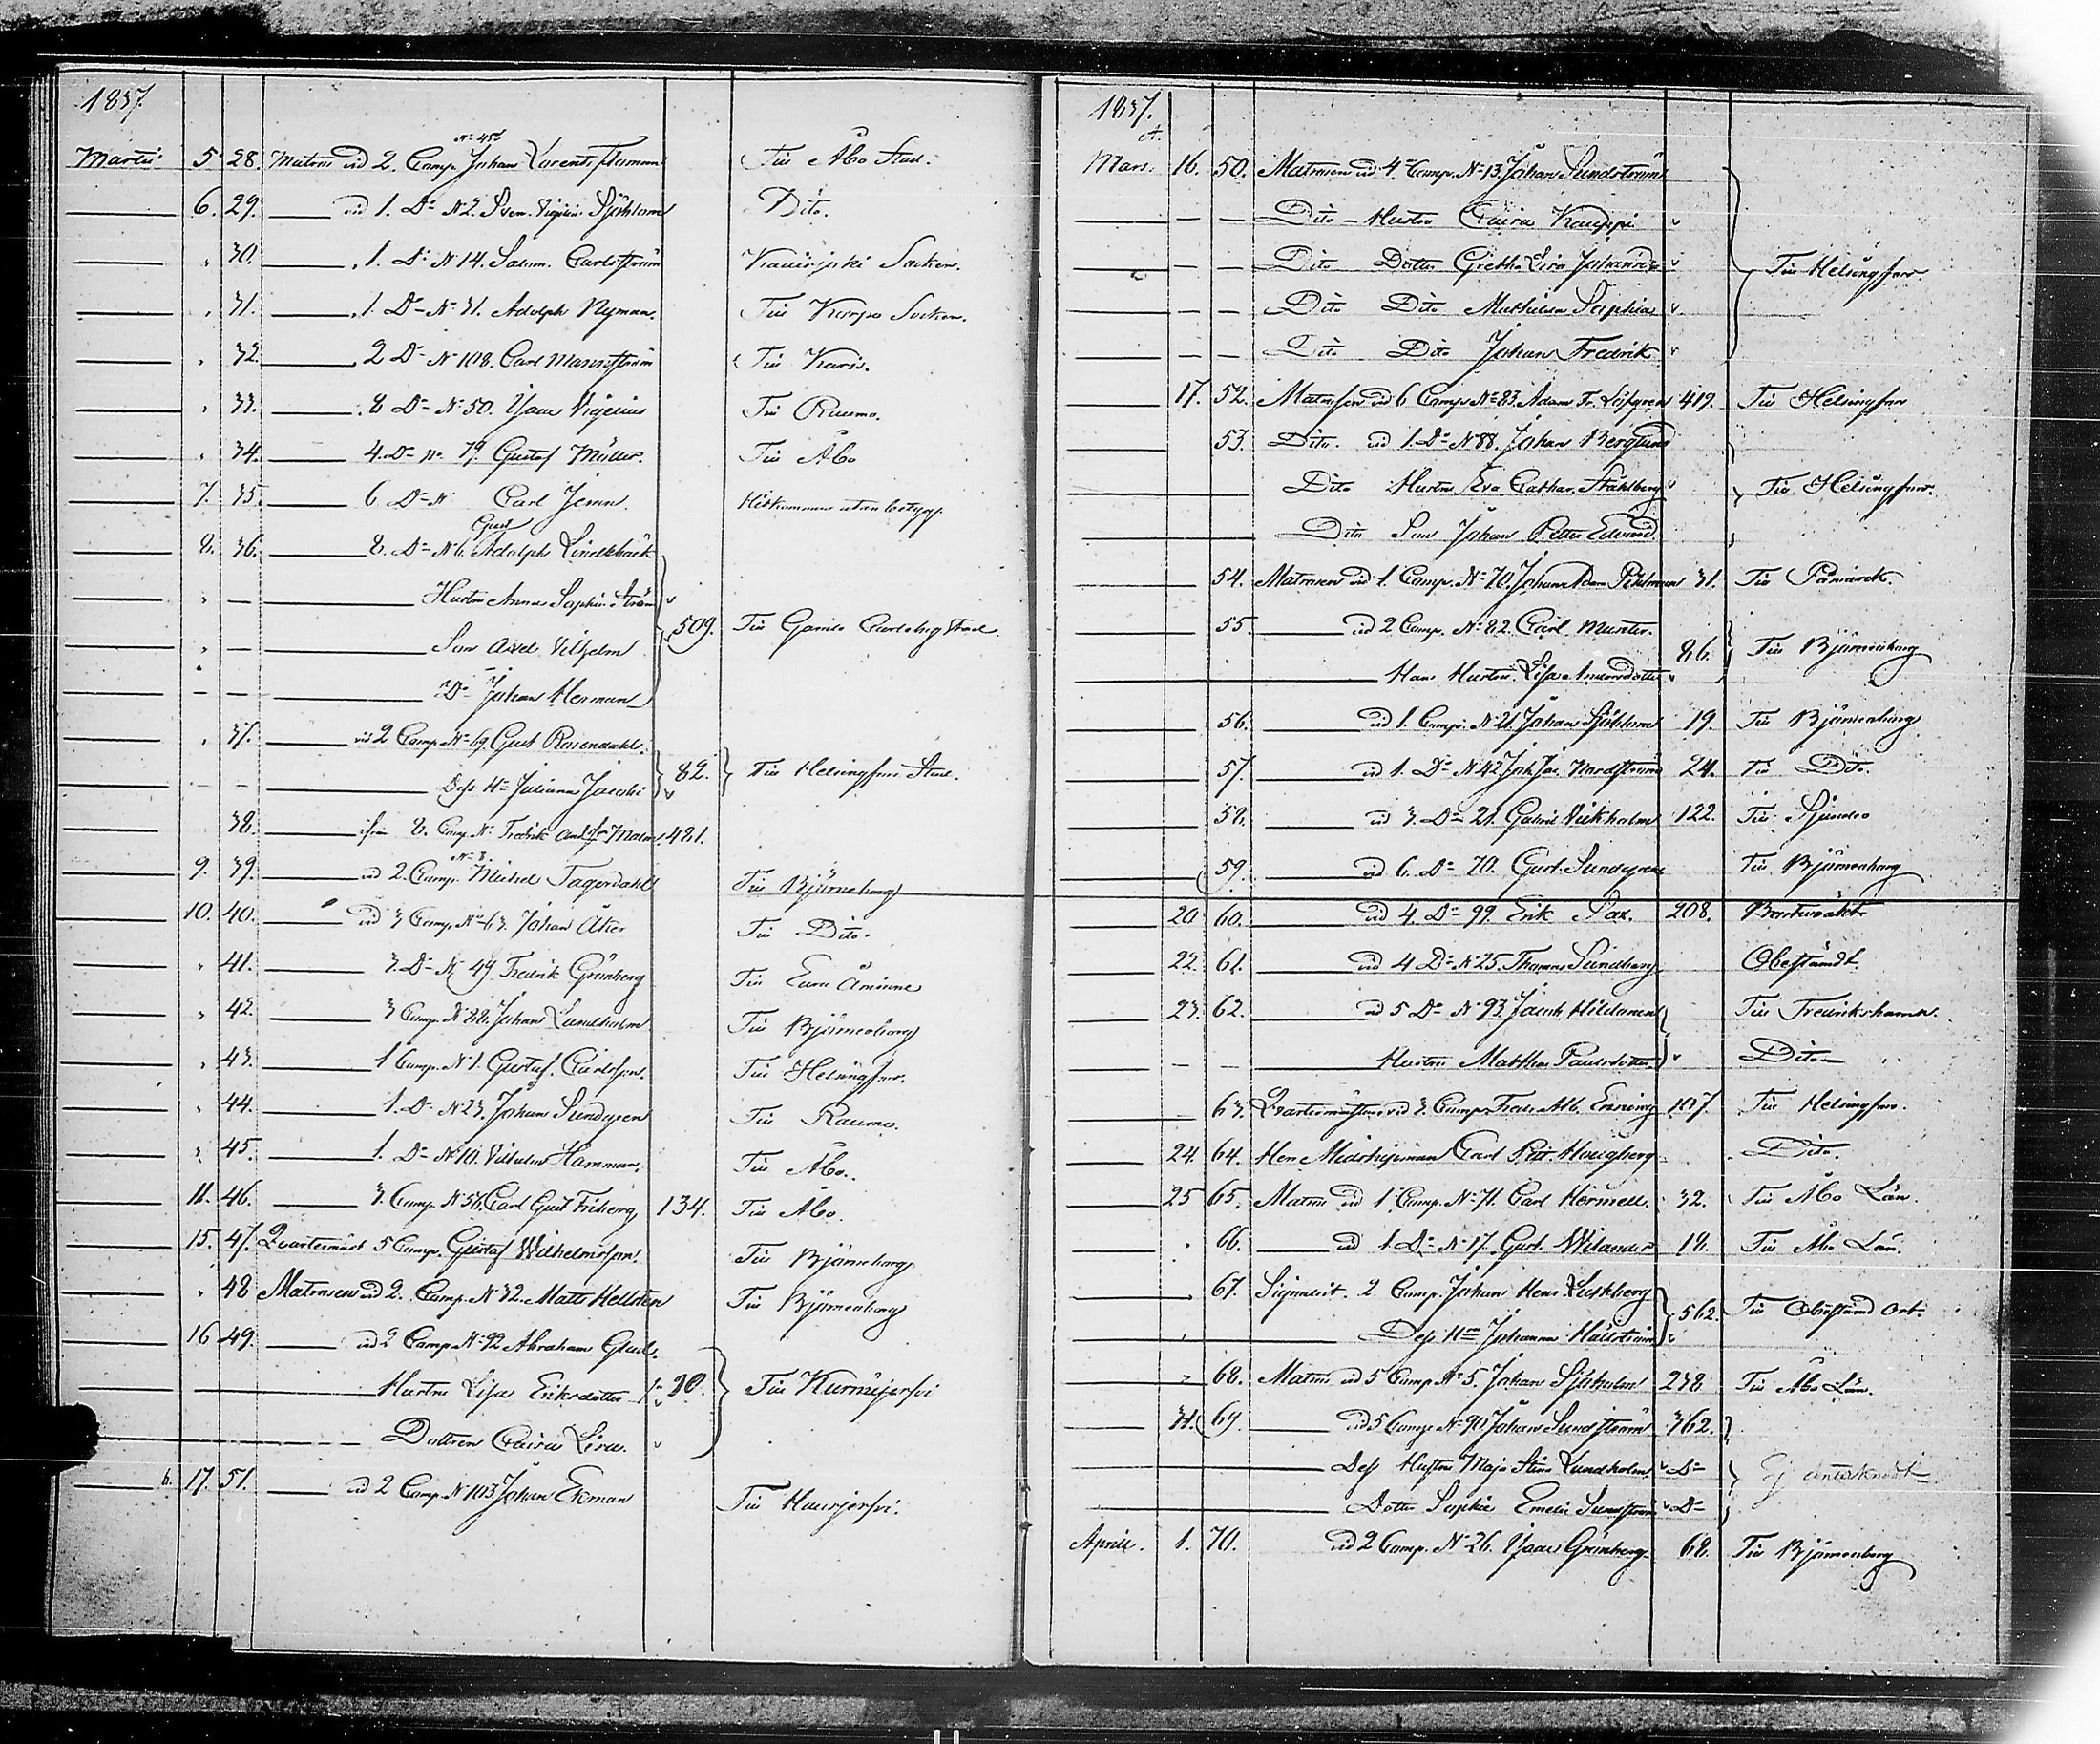 1837.
Martii 5. 28. Matros vid 2. Comp. N:o 45 Johan Larents Flaman Till Åbo Stad.
6. 29. vid 1. D:o N:o 2. Sven Sjöblom Dito.
30. 1. D:o N:o 14. Salom. Carlström Socken.
31. 1. D:o N:o 31. Adolph Nyman. Till Korpo Socken.
32. 2 D:o N:o 108. Carl Mannström Till Karis.
33. 8 D:o N:o 50. Isaac Till Raumo.
34. 4. D:o N:o 79. Gustaf Müller. Till Åbo
7. 35. 6 D:o N:o Carl Jern. Hitkommen utan betyg.
8. 36. 8. D:o N:o 6. Gust Adolph Lindebäck
Hustru Anna Sophia Ström
Son Axel Vilhelm 509. Till Gamla Carleby Stad
D:o Johan Herman
37. vid 2 Comp. N:o 69. Gust Rosendahl.
Dess H:u Juliana Jacobi 82. Till Helsingfors Stad.
38. ifrån 8. Comp. N:o Fredrik And. Malm 481.
9. 39. vid 2. Comp. N:o 8. Michel Fagerdahl Till Björneborg
10. 40. vid 3 Comp. N:o 63. Johan Åker Till Dito.
41. 3. D:o N:o 49. Fredrik Grönberg Till Eura Åminne
42. 3 Comp. N:o 88. Johan Lundholm Till Björneborg
43. 1 Comp. N:o 1. Gustaf Carlsson. Till Helsingfors.
44. 1. D:o N:o 23. Johan Sundgren Till Raumo.
45. 1. D:o N:o 10. Vilhelm Hammar. Till Åbo.
11. 46. 3. Comp. N:o 56. Carl Gust Friberg 134. Till Åbo.
15. 47. Quartermäst 5 Comp. Gustaf Wilhelmsson. Till Björneborg
48 Matrosen vid 2. Comp. N:o 32. Matts Hellsten Till Björneborg
16 49. vid 2 Comp. N:o 92 Abraham Glad.
Hustru Lisa Eriksdotter 90. Till Kurmijerfvi
Dottren Caisa Lisa.
17. 51. vid 2 Comp. N:o 103 Johan Ekman Till Hausjerfvi.
1837.
Mars. 16. 50. Matrosen vid 4. Comp. N:o 13. Johan Sundström
Dito Hustru Caisa Kauppi
Dito Dotter Gretha Lisa Johansd:r Till Helsingfors.
Dito Dito Mathilda Sophia
Dito Dito Johan Fredrik
17. 52. Matrosen vid 6 Comp. N:o 83. Adam Fr. Löfgren 419. Till Helsingfors
53. Dito. vid 1. D:o N:o 88. Johan Berglund
Dito Hustru Eva Cathar. Ståhlberg Till Helsingfors.
Dito Son Johan Petter Edvard.
54. Matrosen vid 1. Comp. N:o 70. Johan Adam Pihlman 31. Till Påmark.
55. vid 2 Comp. N:o 82. Carl Munter.
Hans Hustru Lisa Andersdotter 86. Till Björneborg
56. vid 1. Comp. N:o 21. Johan Sjöblom 19. Till Björneborg
57. vid 1. D:o N:o 42 Joh. Jac. Nordström 24. Till Dito.
58. vid 3. D:o 21. Gabriel Vikholm 122. Till Sjundeo
59. vid 6. D:o 70. Gust. Sundgren Till Björneborg
20 60. vid 4. D:o 99. Erik Sax. 208. Bortwräkt
22. 61. vid 4 D:o N:o 25. Thomas Sundberg Obestämdt.
23. 62. vid 5 D:o N:o 93. Jacob Hildanen Till Fredrikshamn.
Hustru Matthea Paulsdotter Dito
63. Quartermästare vid 3. Comp. Fredr. Alb. Enning 107. Till Helsingfors.
24. 64. Herr Midshipsman Carl Petr. Hougberg Dito.
25 65. Matros vid 1 Comp. N:o 71. Carl Hermell. 32. Till Åbo Län.
66. vid 1. D:o N:o 17. Gust. Wilander 18. Till Åbo Län.
67. Signalist. 2 Comp. Johan Henr.
Dess H:u Johanna Hällström 562. Till Obestämd Ort.
68. Matros vid 5 Comp. N:o 5. Johan Sjöholm 238 Till Åbo Län.
31. 69. vid 5 Comp. N:o 90 Johan Sundström 362.
Dess Hustru Maja Stina Lundholm D:o Ej antecknadt
Dotter Sophia Emelie Sundström D:o
Aprill. 1. 70. vid 2 Comp. N:o 26. Isaac Grönberg. 68. Till Björneborg